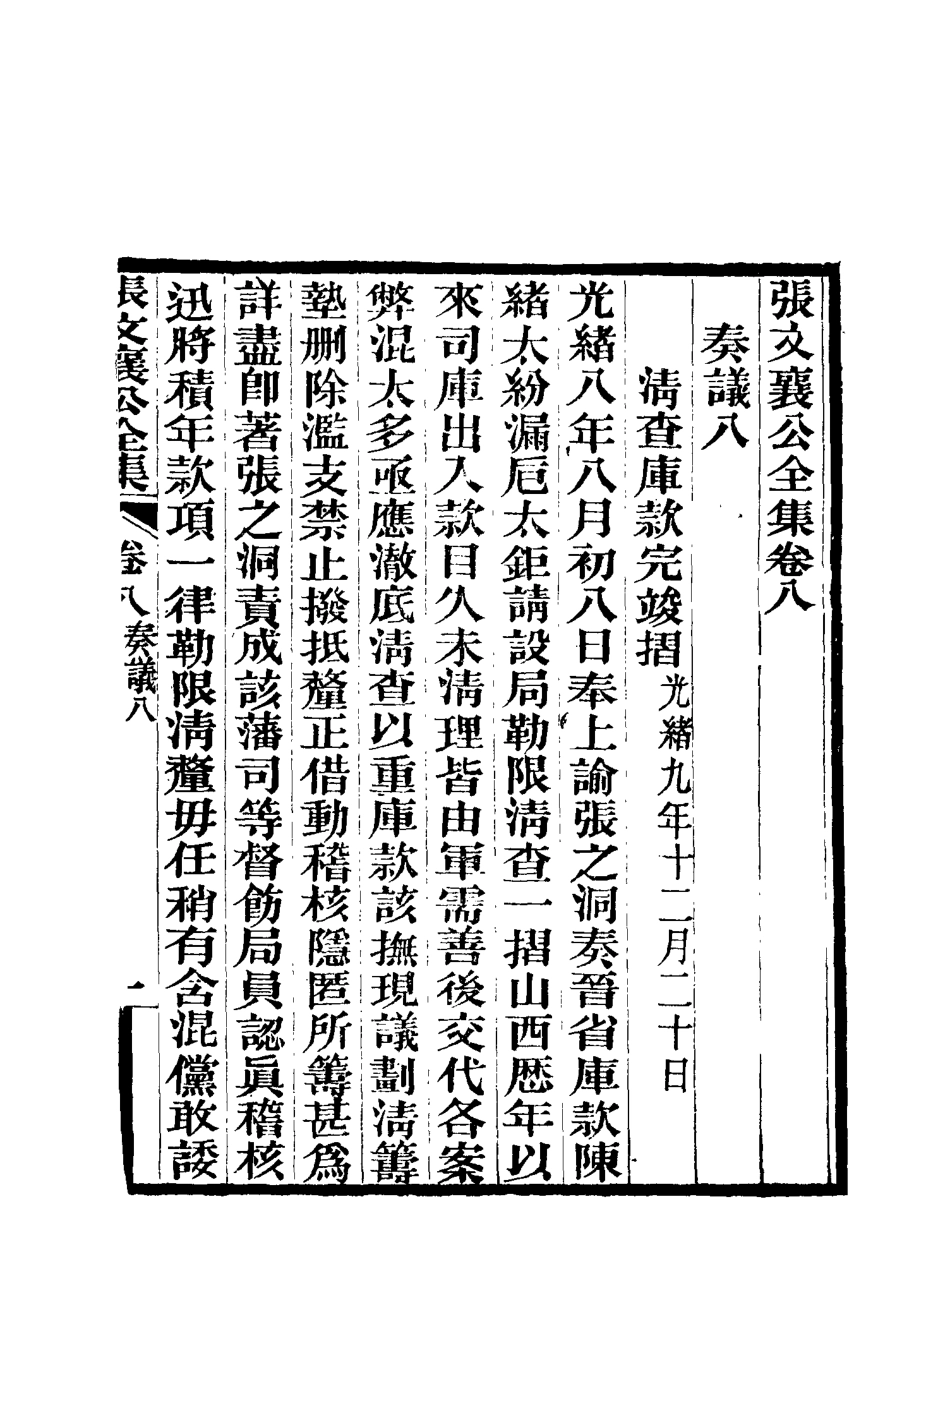 張文襄公全集卷八
奏議八
淸查庫款完竣摺光緒九年十二月二十日
光緒八年八月初八日奉上諭張之洞奏晉省庫款陳
緒太紛漏卮太鉅請設局勒限淸查一摺山西歷年以
來司庫出入款目久未淸理皆由軍需善後交代各案
弊混太多亟應澈底淸查以重庫款該撫現議劃淸籌
墊刪除濫支禁止撥抵釐正借動稽核隱匿所籌甚爲
詳盡卽著張之洞責成該藩司等督飭局員認眞稽核
迅將積年款項一律勒限淸釐毋任稍有含混儻敢諉
張文襄公全集
卷八奏議八
一